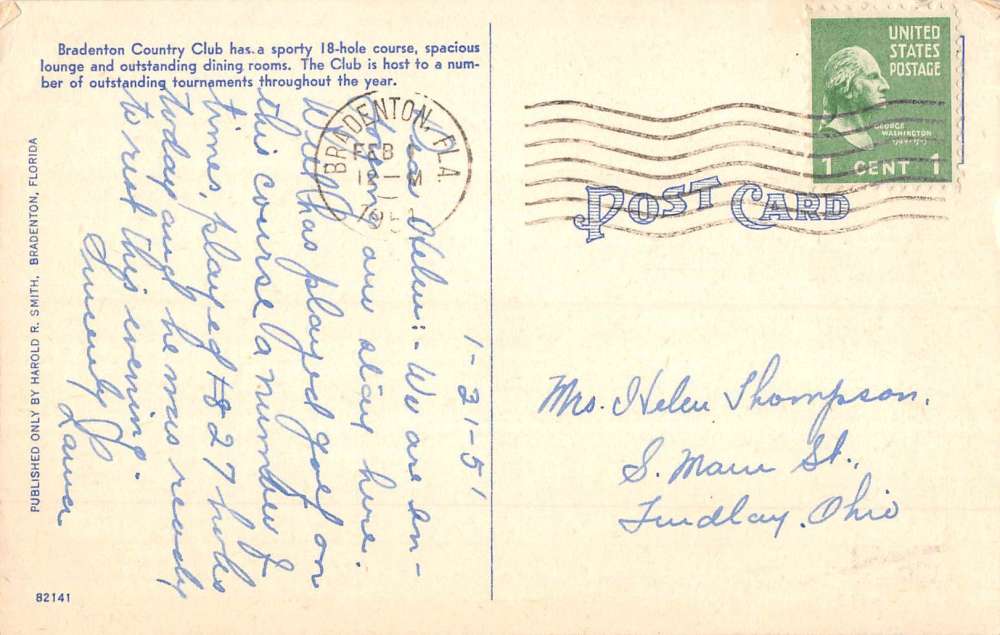 Bradenton Country Club has a sporty 18-hole course, spacious
lounge and outstanding dining rooms. The Club is host to a num-
ber of outstanding tournaments throughout the year.
1-31-51
Dear Helen:- We are en-
joying our stay here.
Will has played golf on
this course a number of
times, played 27 holes
today and he was ready
to rest this evening.
Sincerely
PUBLISHED ONLY BY HAROLD R. SMITH, BRADENTON, FLORIDA
82141
BRADENTON, FLA.
FEB
12-M
UNITED
STATES
POSTAGE
GEORGE
WASHINGTON
1 CENT 1
POST CARD
Mrs. Helen Thompson.
S. Main St.,
Findlay, Ohio